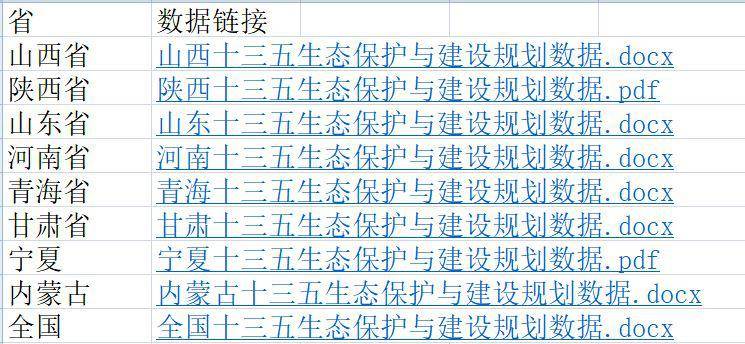 省 数据链接
山西省 山西十三五生态保护与建设规划数据.docx
陕西省 陕西十三五生态保护与建设规划数据.pdf
山东省 山东十三五生态保护与建设规划数据.docx
河南省 河南十三五生态保护与建设规划数据.docx
青海省 青海十三五生态保护与建设规划数据.docx
甘肃省 甘肃十三五生态保护与建设规划数据.docx
宁夏 宁夏十三五生态保护与建设规划数据.pdf
内蒙古 内蒙古十三五生态保护与建设规划数据.docx
全国 全国十三五生态保护与建设规划数据.docx